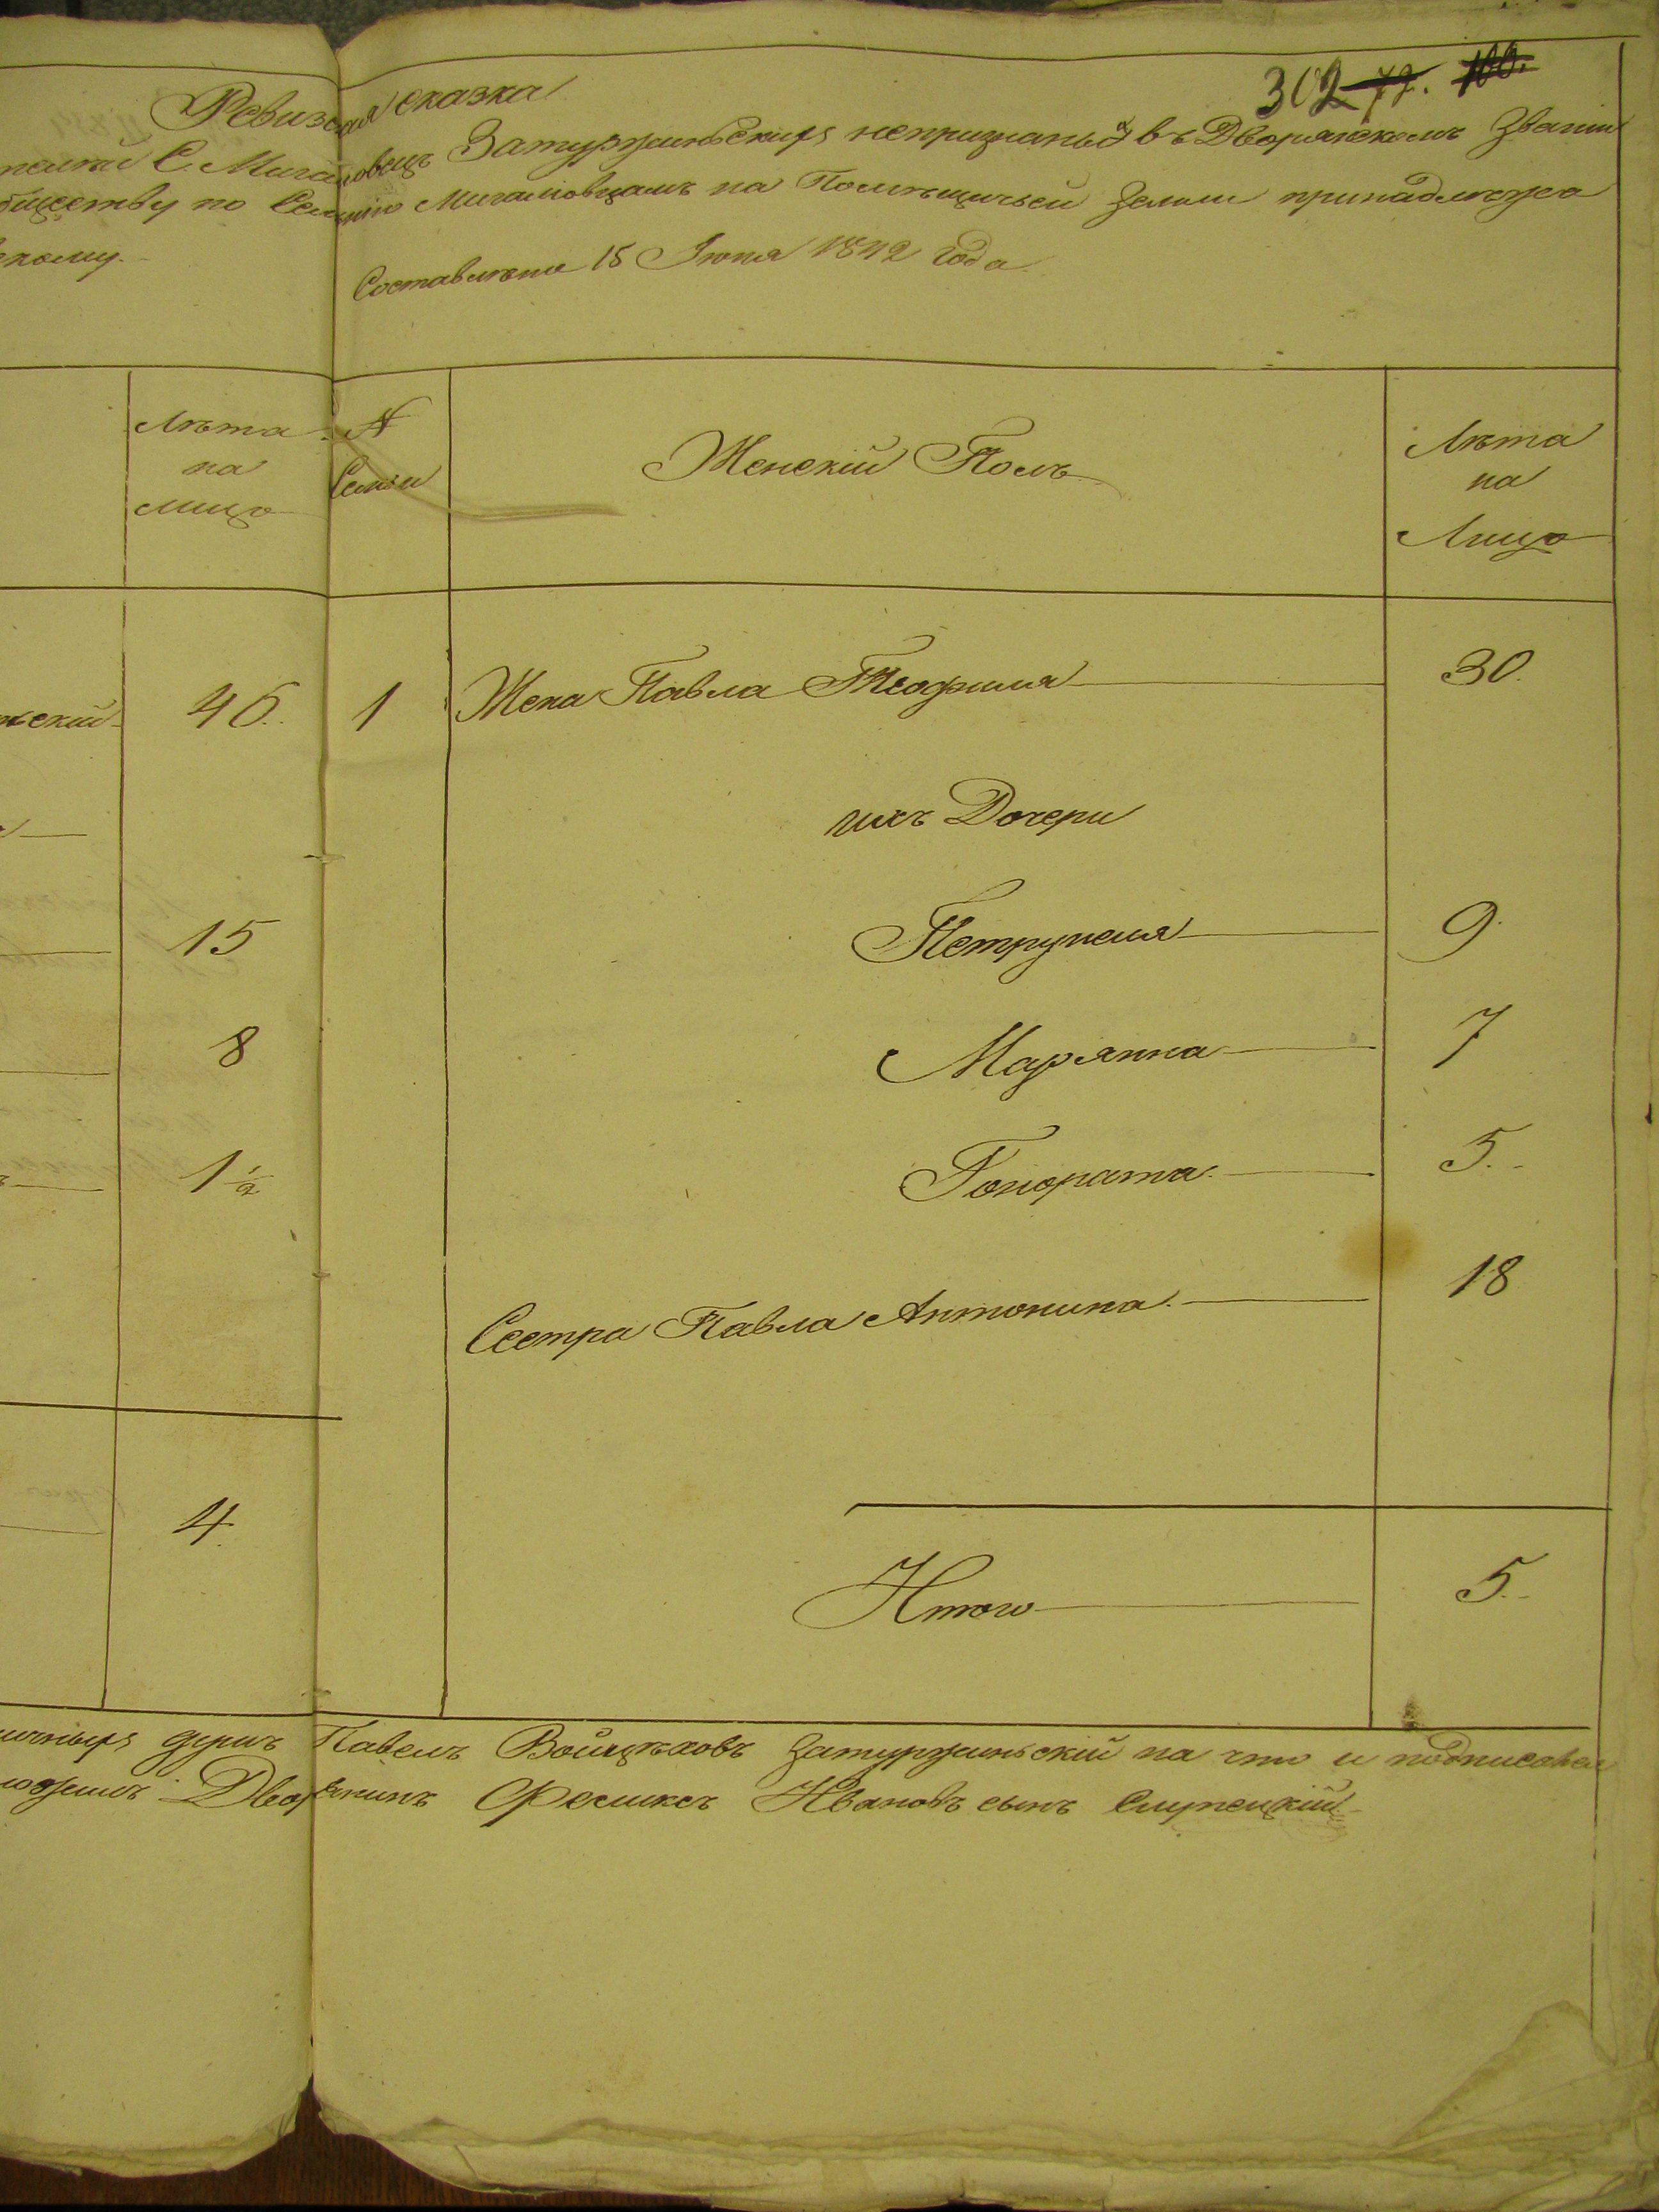 302 77. 100.
Ревизская сказка
С. Михаловецъ Затуржинскихъ непризнаныхъ въ Дворянскомъ Званіи
обществу по Селенію Михаловцамъ на Помѣщичьей Земли принадлежа
скому.
Составлѣна 15 Іюня 1842 года
Лѣта на лицо
№ Семьи
Женскій Полъ
Лѣта на Лицо
46. 1 Жена Павла Теофиля 30.
ихъ Дочери
15 Петрунеля 9
8 Марянна 7
1 1/2 Гонората 5.
Сестра Павла Антонина. 18
4. Итого 5.
душъ Павелъ Войцѣховъ Затуржинскій на что и подписался
Дворянинъ Феликсъ Ивановъ сынъ Слупецкій